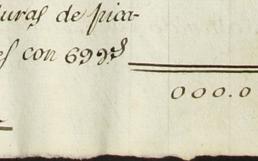 turas de pica-
es con 699$
000.0